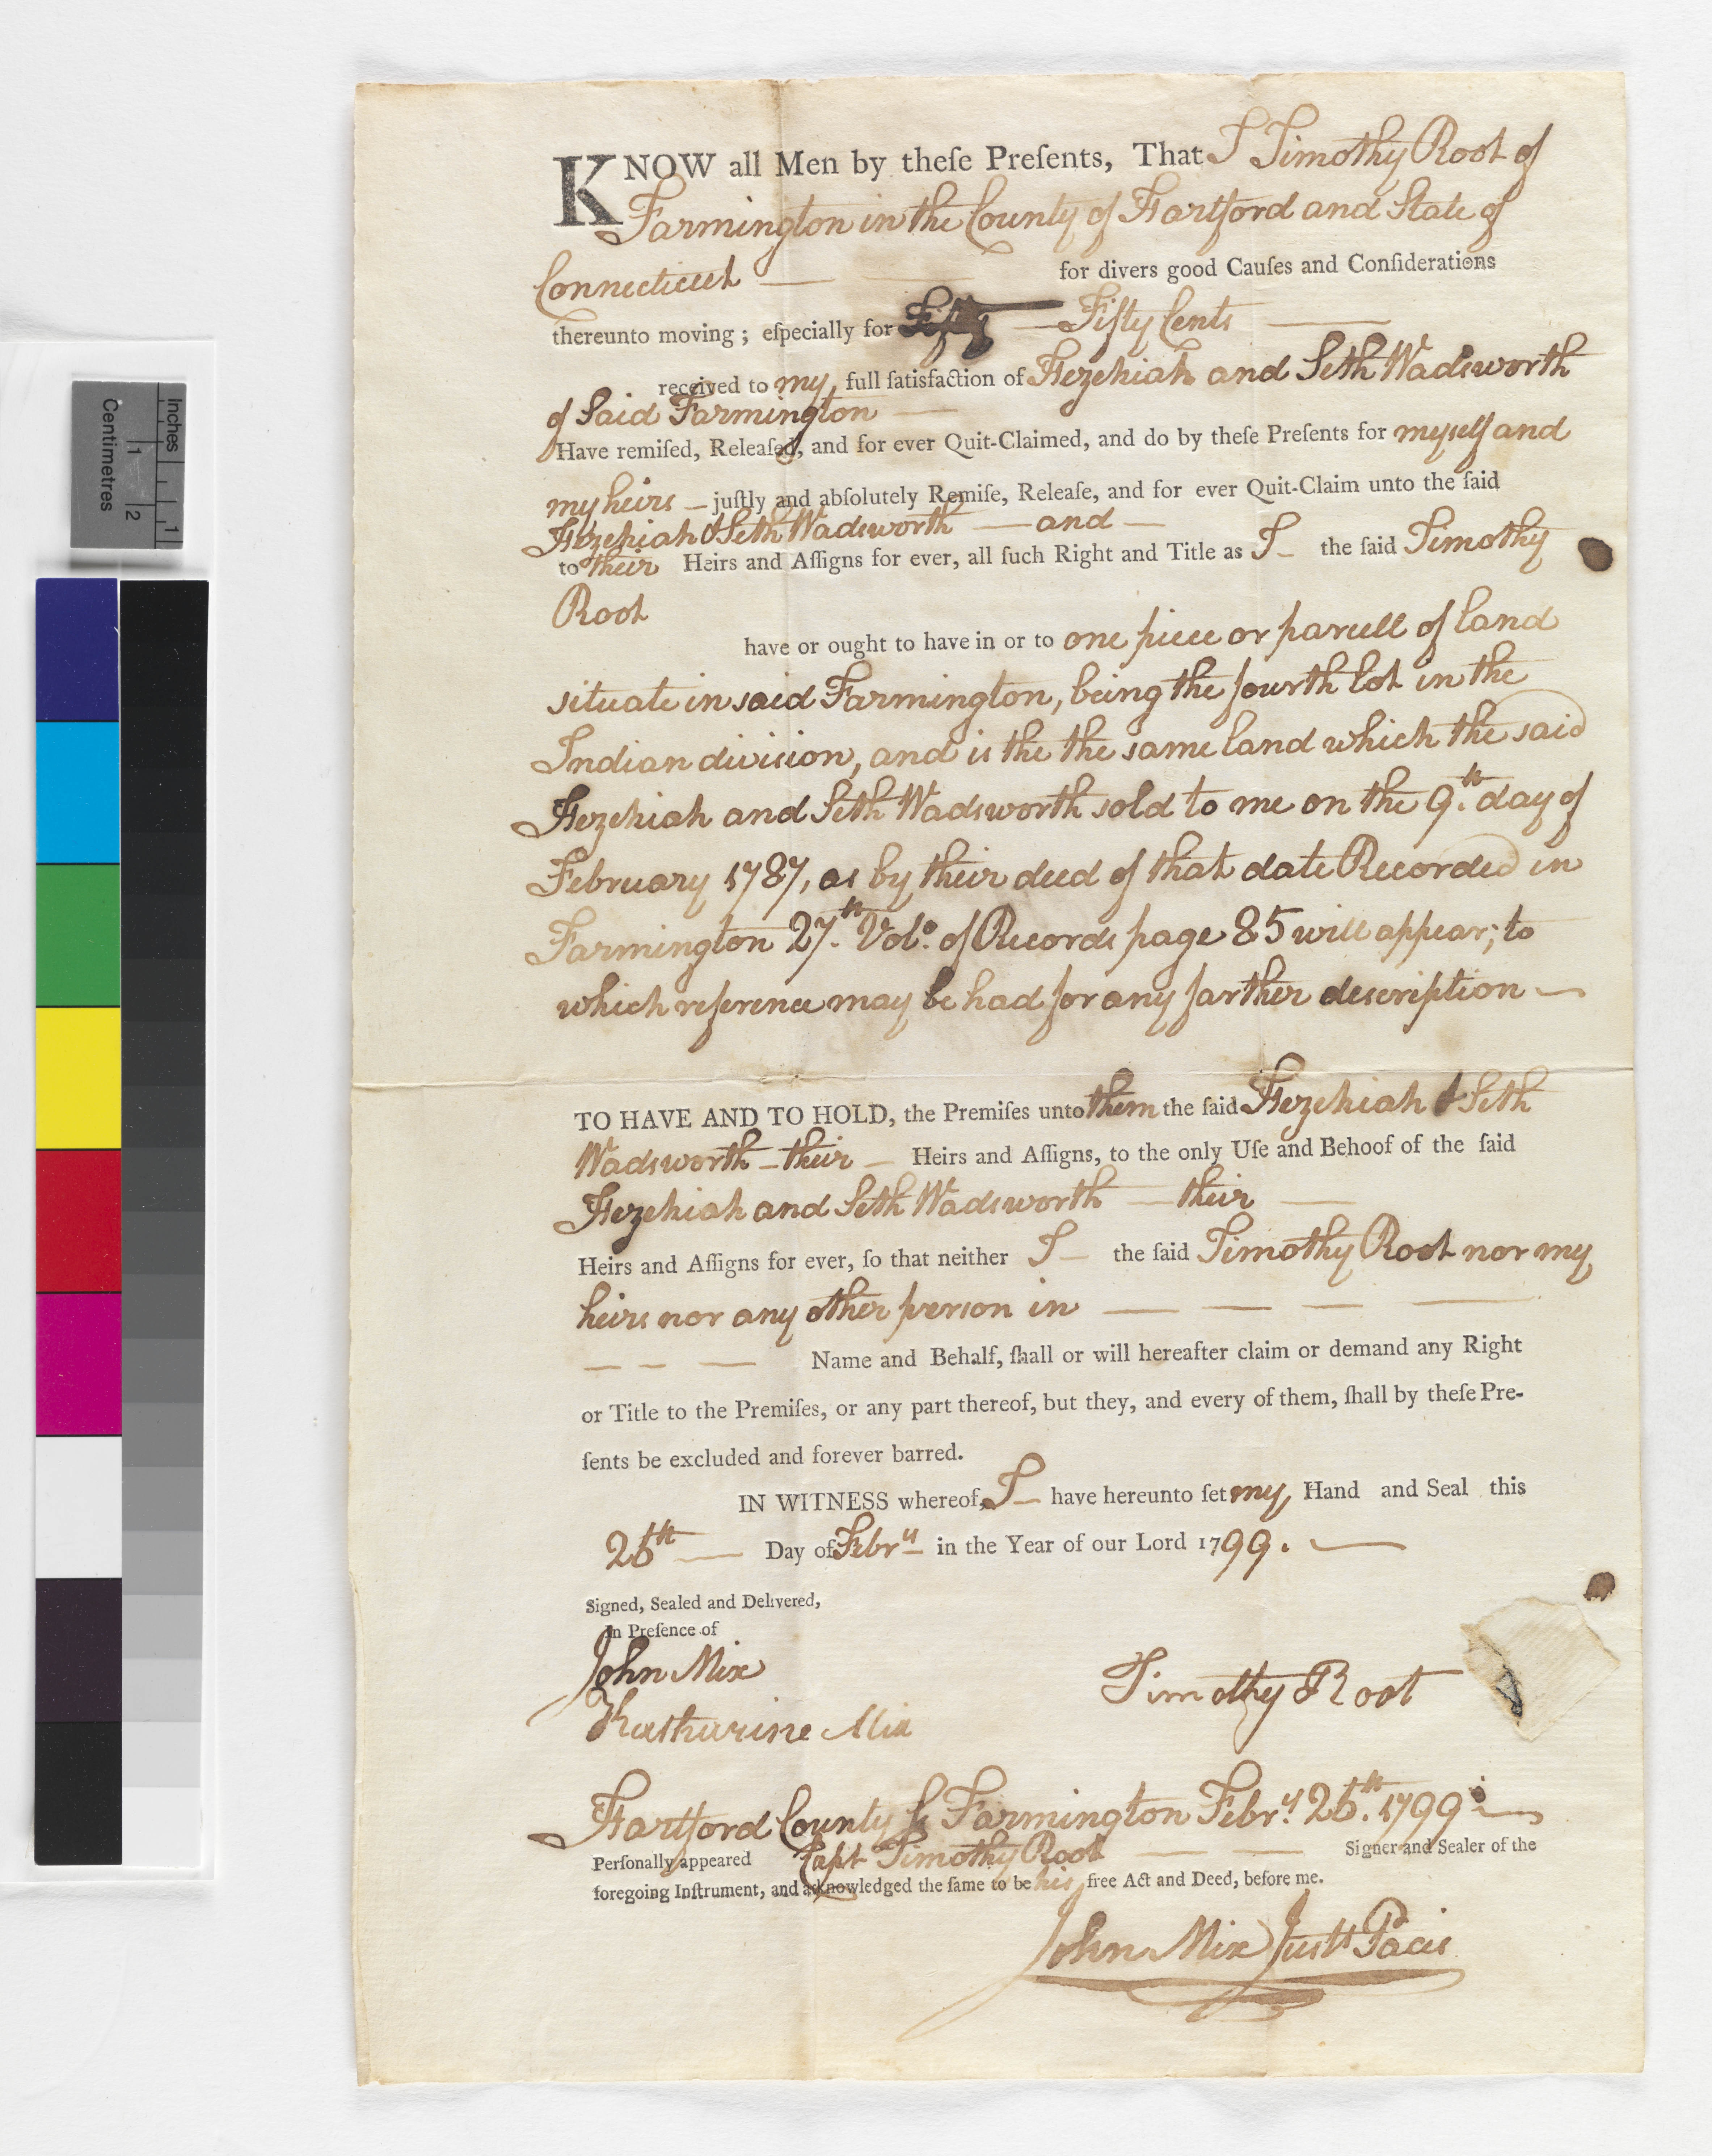 KNOW all Men by theſe Preſents, That I Timothy Root of
Farmington in the County of Hartford and State of
Connecticut — — for divers good Cauſes and Conſiderations
thereunto moving ; eſpecially for Fifty — Fifty Cents —
received to my full ſatisfaction of Hezekiah and Seth Wadsworth
of Said Farmington —
Have remiſed, Releaſed, and for ever Quit-Claimed, and do by theſe Preſents for myself and
my heirs — juſtly and abſolutely Remiſe, Releaſe, and for ever Quit-Claim unto the ſaid
Hezekiah & Seth Wadsworth — and —
to their Heirs and Aſſigns for ever, all ſuch Right and Title as I — the ſaid Timothy
Root
have or ought to have in or to one piece or parcell of land
situate in said Farmington, being the fourth lot in the
Indian division, and is the the same land which the said
Hezekiah and Seth Wadsworth sold to me on the 9.th day of
February 1787, as by their deed of that date Recorded in
Farmington 27.th Vol.o of Records page 85 will appear; to
which reference may be had for any farther description —
TO HAVE AND TO HOLD, the Premiſes unto them the ſaid Hezekiah & Seth
Wadsworth — their — Heirs and Aſſigns, to the only Uſe and Behoof of the ſaid
Hezekiah and Seth Wadsworth — their —
Heirs and Aſſigns for ever, ſo that neither I — the ſaid Timothy Root nor my
heirs nor any other person in — — — —
— — — Name and Behalf, ſhall or will hereafter claim or demand any Right
or Title to the Premiſes, or any part thereof, but they, and every of them, ſhall by theſe Pre-
ſents be excluded and forever barred.
IN WITNESS whereof, I — have hereunto ſet my Hand and Seal this
26th — Day of Febry in the Year of our Lord 1799. —
Signed, Sealed and Delivered,
In Preſence of
John Mix
Timothy Root
Katharine Mix
Hartford County ſs Farmington Febr.y 26.th 1799 —
Perſonally appeared Capt Timothy Root — — Signer and Sealer of the
foregoing Inſtrument, and acknowledged the ſame to be his free Act and Deed, before me.
John Mix Just Pacis
Inches
1
Centimetres
1
2